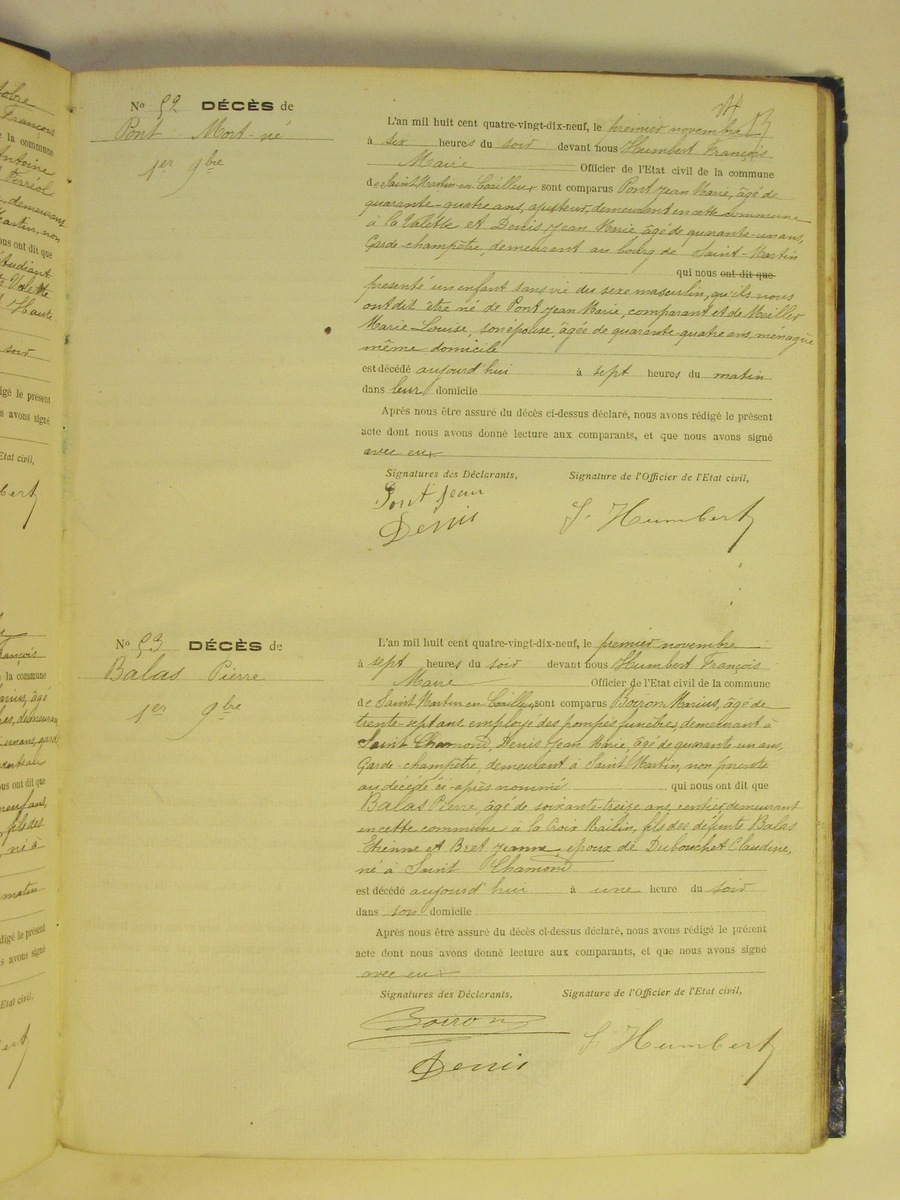 No 52 DÉCÈS de
Pont Mort-né
1er 9bre
L'an mil huit cent quatre-vingt-dix-neuf, le premier novembre
à six heures du soir devant nous Humbert François
Maire Officier de l'Etat civil de la commune
de Saint Martin-en-Coailleux sont comparus Pont Jean Marie, âgé de
quarante-quatre ans, ajusteur, demeurant en cette commune
à la Valette et Denis Jean Marie, âgé de quarante-un ans,
Garde-champêtre, demeurant au bourg de Saint-Martin
qui nous ont dit que
presenté un enfant sans vie du sexe masculin, qu'ils nous
ont dit être né de Pont Jean Marie, comparant et de
Marie Louise, son épouse, âgée de quarante quatre ans, ménagère
même domicile
est décédé aujourd'hui à sept heures du matin
dans leur domicile
Après nous être assuré du décès ci-dessus déclaré, nous avons rédigé le présent
acte dont nous avons donné lecture aux comparants, et que nous avons signé
avec eux
Signatures des Déclarants, Signature de l'Officier de l'Etat civil,
Pont Jean
Denis
F. Humbert
No 53 DÉCÈS de
Balas Pierre
1er 9bre
L'an mil huit cent quatre-vingt-dix-neuf, le premier novembre
à sept heures du soir devant nous Humbert François
Maire Officier de l'Etat civil de la commune
de Saint Martin-en-Coailleux sont comparus Boiron Marius, âgé de
trente-sept ans employé des pompes funèbres, demeurant à
Saint Chamond, Denis Jean Marie, âgé de quarante-un ans,
Garde-champêtre, demeurant à Saint Martin, non parents
au décédé ci-après nommé qui nous ont dit que
Balas Pierre, âgé de soixante-treize ans, rentier, demeurant
en cette commune à la Croix, fils des défunts Balas
Etienne et Bret Jeanne, époux de Dubouchet Claudine,
né à Saint Chamond
est décédé aujourd'hui à une heure du soir
dans son domicile
Après nous être assuré du décès ci-dessus déclaré, nous avons rédigé le présent
acte dont nous avons donné lecture aux comparants, et que nous avons signé
avec eux
Signatures des Déclarants, Signature de l'Officier de l'Etat civil,
Boiron
Denis
F. Humbert